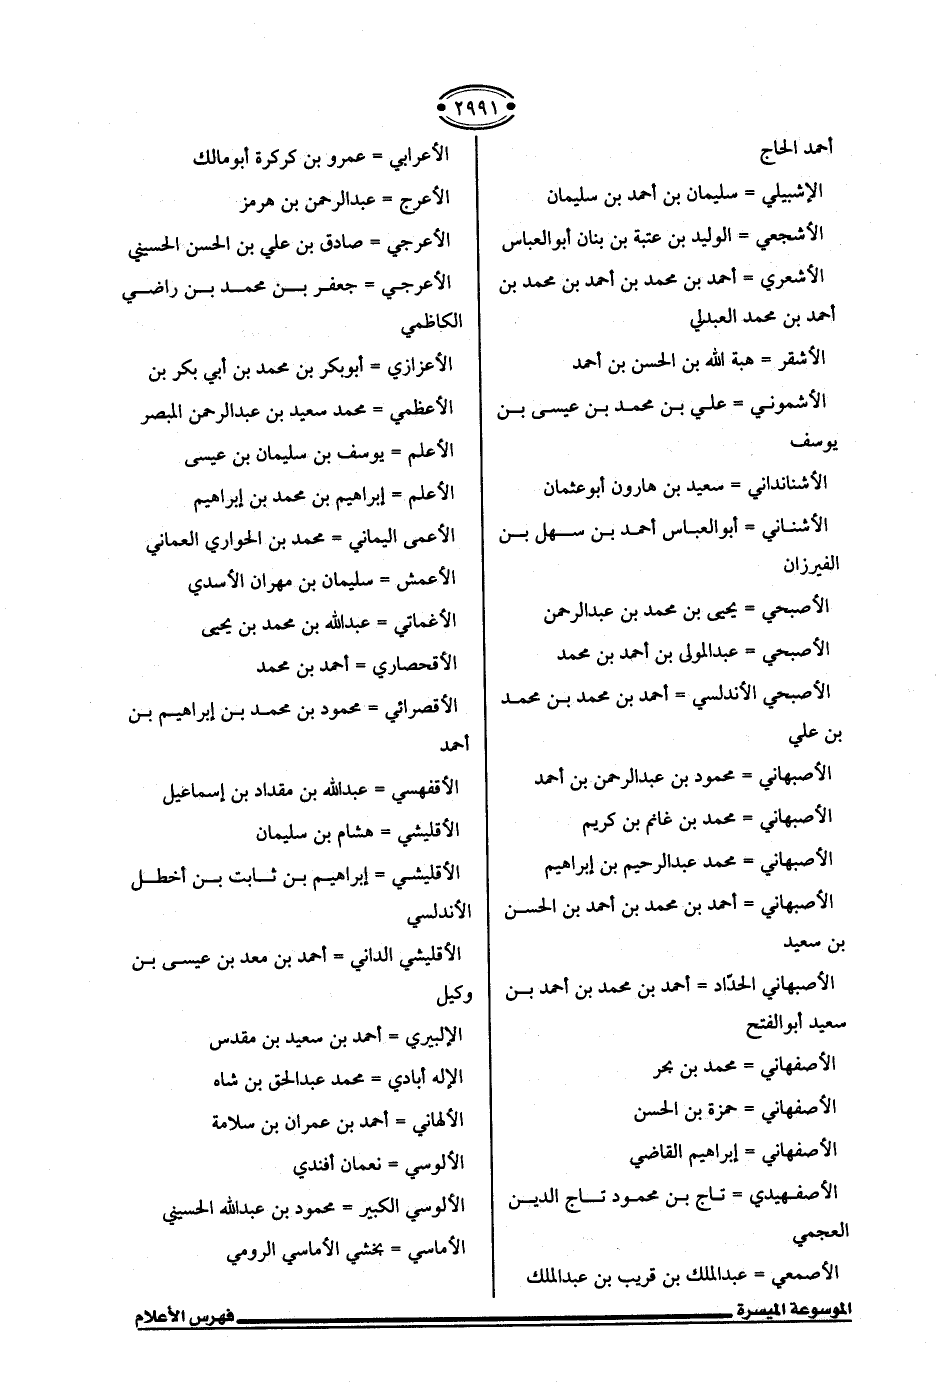 ٢٩٩١
أحمد الحاج
الإشبيلي = سليمان بن أحمد بن سليمان
الأشجعي = الوليد بن عتبة بن بنان أبوالعباس
الأشعري = أحمد بن محمد بن أحمد بن محمد بن
أحمد بن محمد العبدلي
الأشقر = هبة الله بن الحسن بن أحمد
الأشموني = علي بن محمد بن عيسى بن
يوسف
الأشنانداني = سعيد بن هارون أبوعثمان
الأشناني = أبوالعباس أحمد بن سهل بن
الفيرزان
الأصبحي = يحيى بن محمد بن عبدالرحمن
الأصبحي = عبدالمولى بن أحمد بن محمد
الأصبحي الأندلسي = أحمد بن محمد بن محمد
بن علي
الأصبهاني = محمود بن عبدالرحمن بن أحمد
الأصبهاني = محمد بن غانم بن كريم
الأصبهاني = محمد عبدالرحيم بن إبراهيم
الأصبهاني = أحمد بن محمد بن أحمد بن الحسن
بن سعيد
الأصبهاني الحدّاد = أحمد بن محمد بن أحمد بن
سعيد أبوالفتح
الأصفهاني = محمد بن بحر
الأصفهاني = حمزة بن الحسن
الأصفهاني = إبراهيم القاضي
الأصفهيدي = تاج بن محمود تاج الدين
العجمي
الأصمعي = عبدالملك بن قريب بن عبدالملك
الأعرابي = عمرو بن كركرة أبومالك
الأعرج = عبدالرحمن بن هرمز
الأعرجي = صادق بن علي بن الحسن الحسيني
الأعرجي = جعفر بن محمد بن راضي
الكاظمي
الأعزازي = أبوبكر بن محمد بن أبي بكر بن
الأعظمي = محمد سعيد بن عبدالرحمن المبصر
الأعلم = يوسف بن سليمان بن عيسى
الأعلم = إبراهيم بن محمد بن إبراهيم
الأعمى اليماني = محمد بن الحواري العماني
الأعمش = سليمان بن مهران الأسدي
الأغماتي = عبدالله بن محمد بن يحيى
الأقحصاري = أحمد بن محمد
الأقصرائي = محمود بن محمد بن إبراهيم بن
أحمد
الأقفهسي = عبدالله بن مقداد بن إسماعيل
الأقليشي = هشام بن سليمان
الأقليشي = إبراهيم بن ثابت بن أخطل
الأندلسي
الأقليشي الداني = أحمد بن معد بن عيسى بن
وكيل
الإلبيري = أحمد بن سعيد بن مقدس
الإله أبادي = محمد عبدالحق بن شاه
الألهاني = أحمد بن عمران بن سلامة
الألوسي = نعمان أفندي
الألوسي الكبير = محمود بن عبدالله الحسيني
الأماسي = بخشي الأماسي الرومي
الموسوعة الميسرة فهرس الأعلام